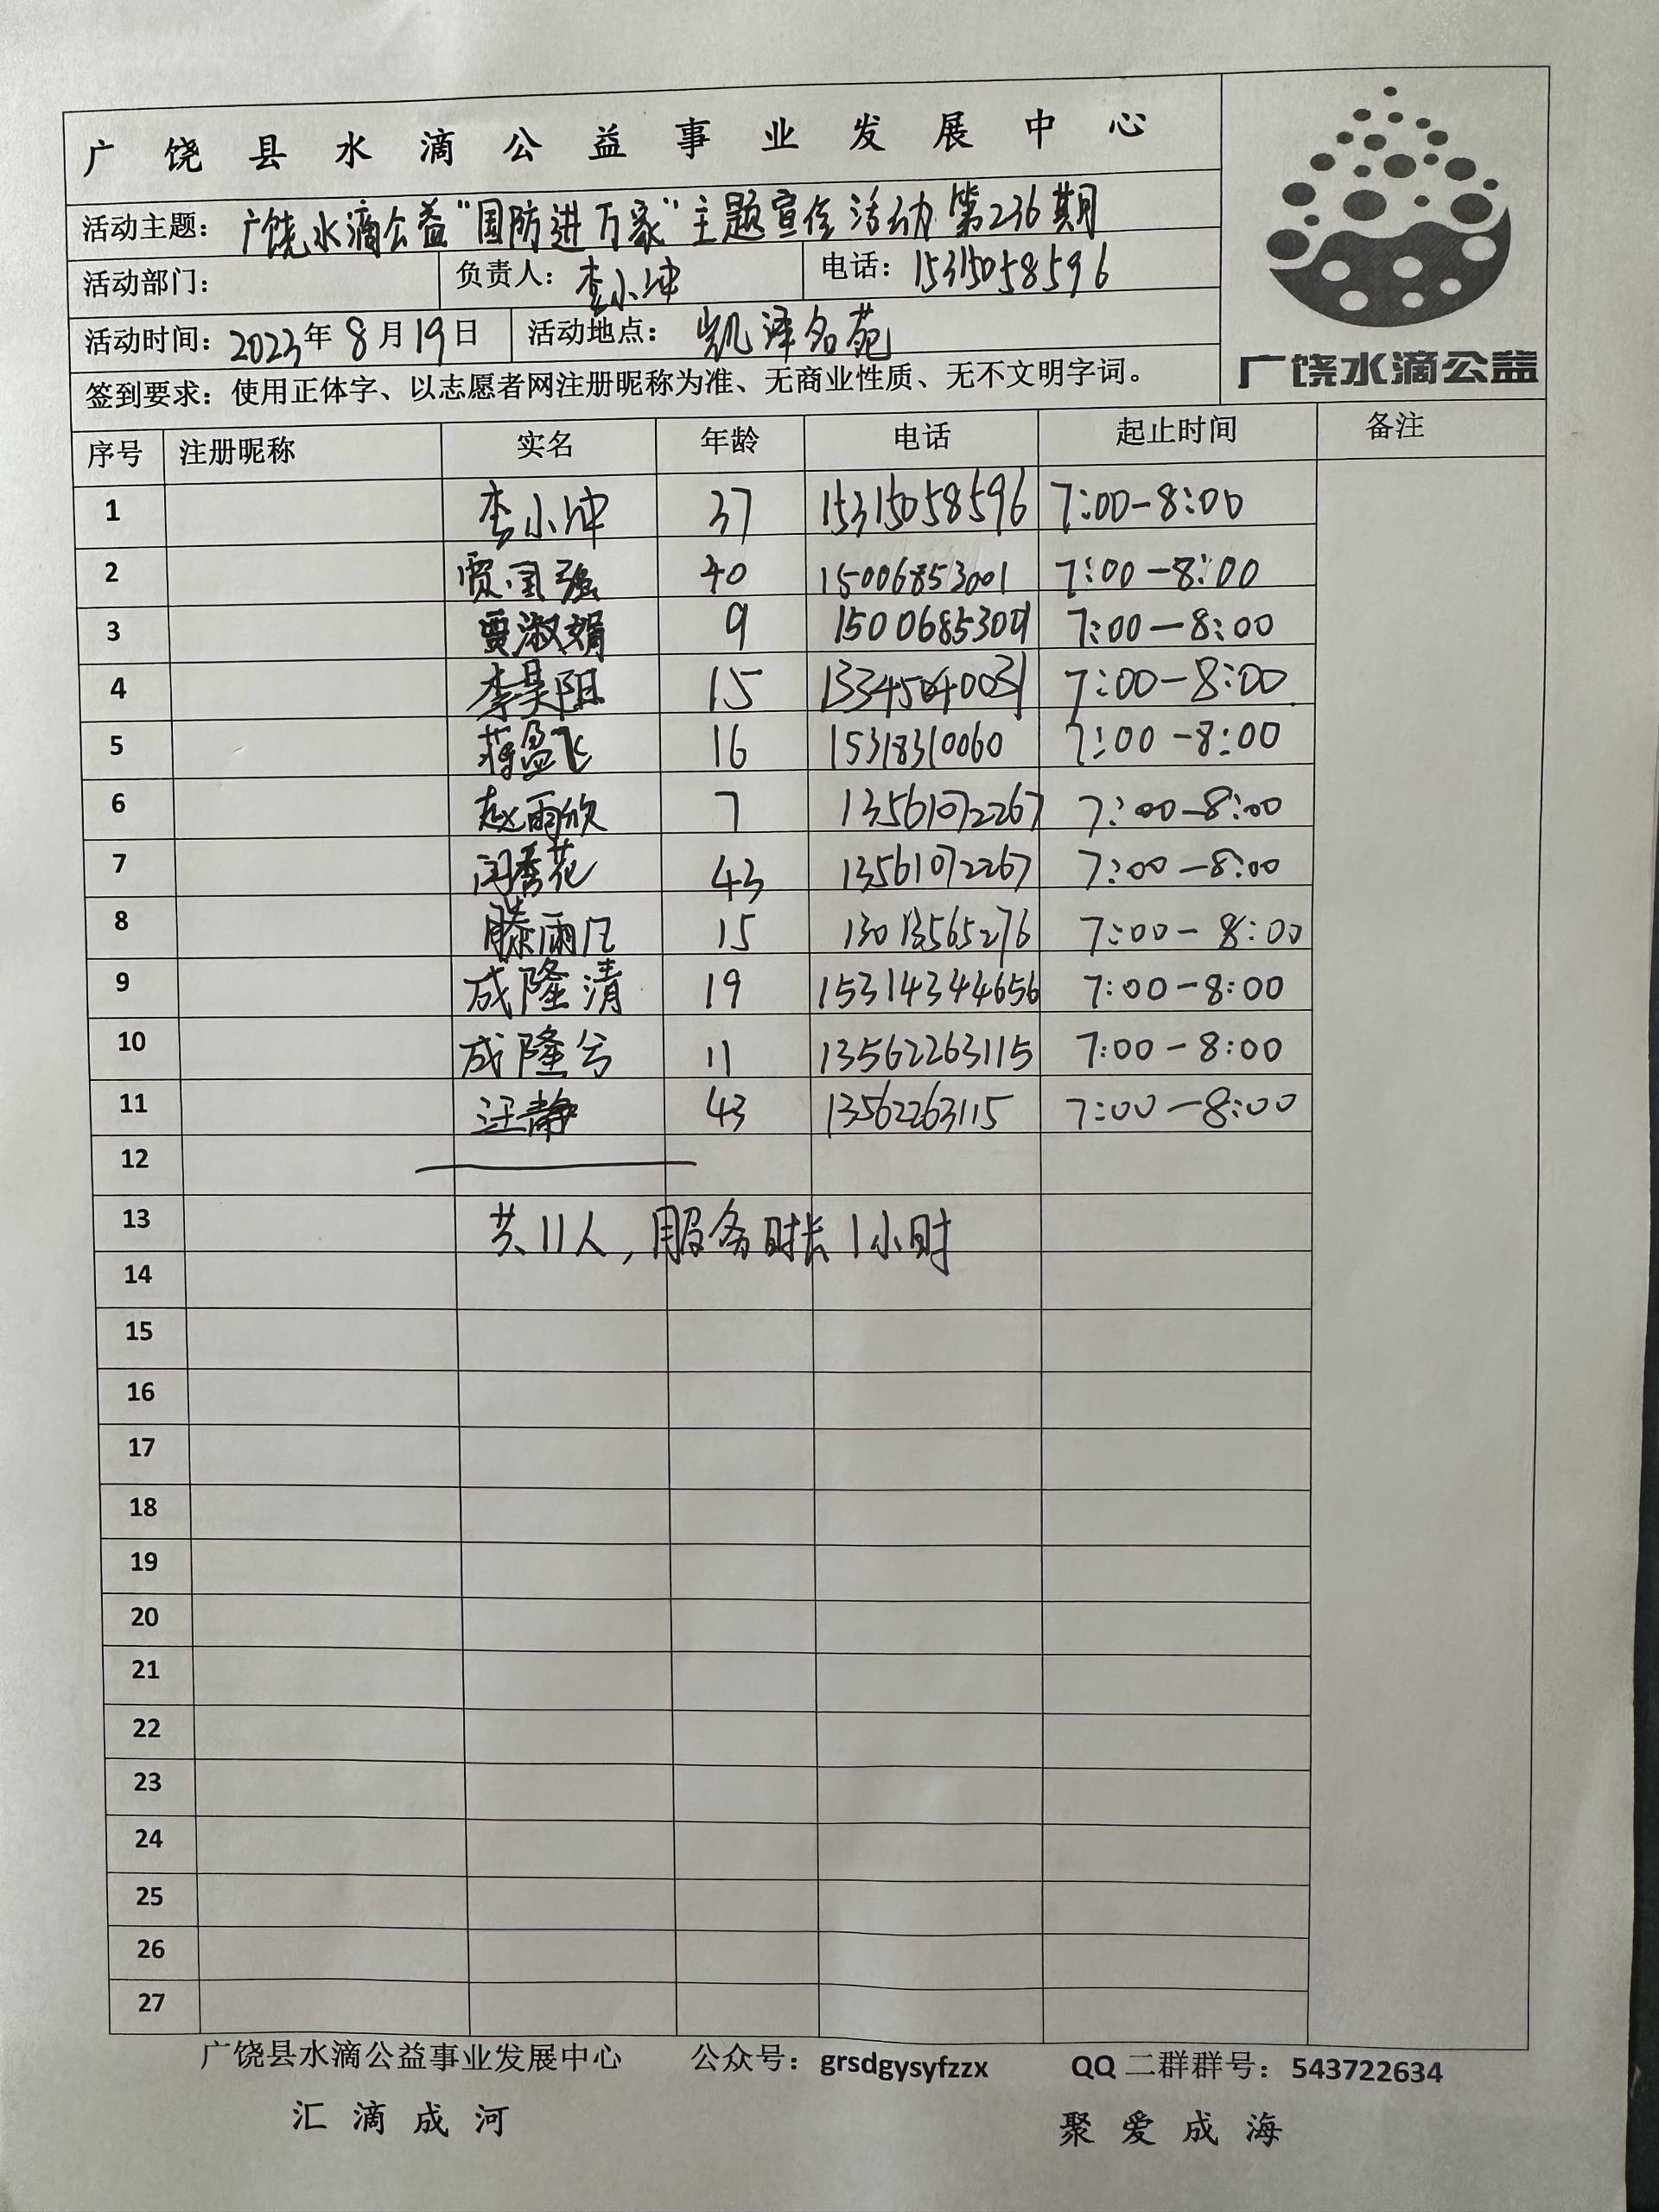 广饶县水滴公益事业发展中心
活动主题：广饶水滴公益"国防进万家"主题宣传活动第236期
活动部门： 负责人：李小坤 电话：15315058596
活动时间：2023年8月19日 活动地点：凯泽名苑
签到要求：使用正体字、以志愿者网注册昵称为准、无商业性质、无不文明字词。
广饶水滴公益
序号 注册昵称 实名 年龄 电话 起止时间 备注
1 李小坤 37 15315058596 7:00-8:00
2 贾国强 40 15006853001 7:00-8:00
3 贾淑娟 9 7:00-8:00
4 李昊阳 15 7:00-8:00
5 蒋盈飞 16 15318310060 7:00-8:00
6 赵雨欣 7 13561072267 7:00-8:00
7 闫秀花 43 13561072267 7:00-8:00
8 滕雨凡 15 13013565276 7:00-8:00
9 成隆清 19 15314344656 7:00-8:00
10 成隆兮 11 13562263115 7:00-8:00
11 汪静 43 13562263115 7:00-8:00
12
13 共11人，服务时长1小时
14
15
16
17
18
19
20
21
22
23
24
25
26
27
广饶县水滴公益事业发展中心 公众号：grsdgysyfzzx QQ二群群号：543722634
汇滴成河 聚爱成海